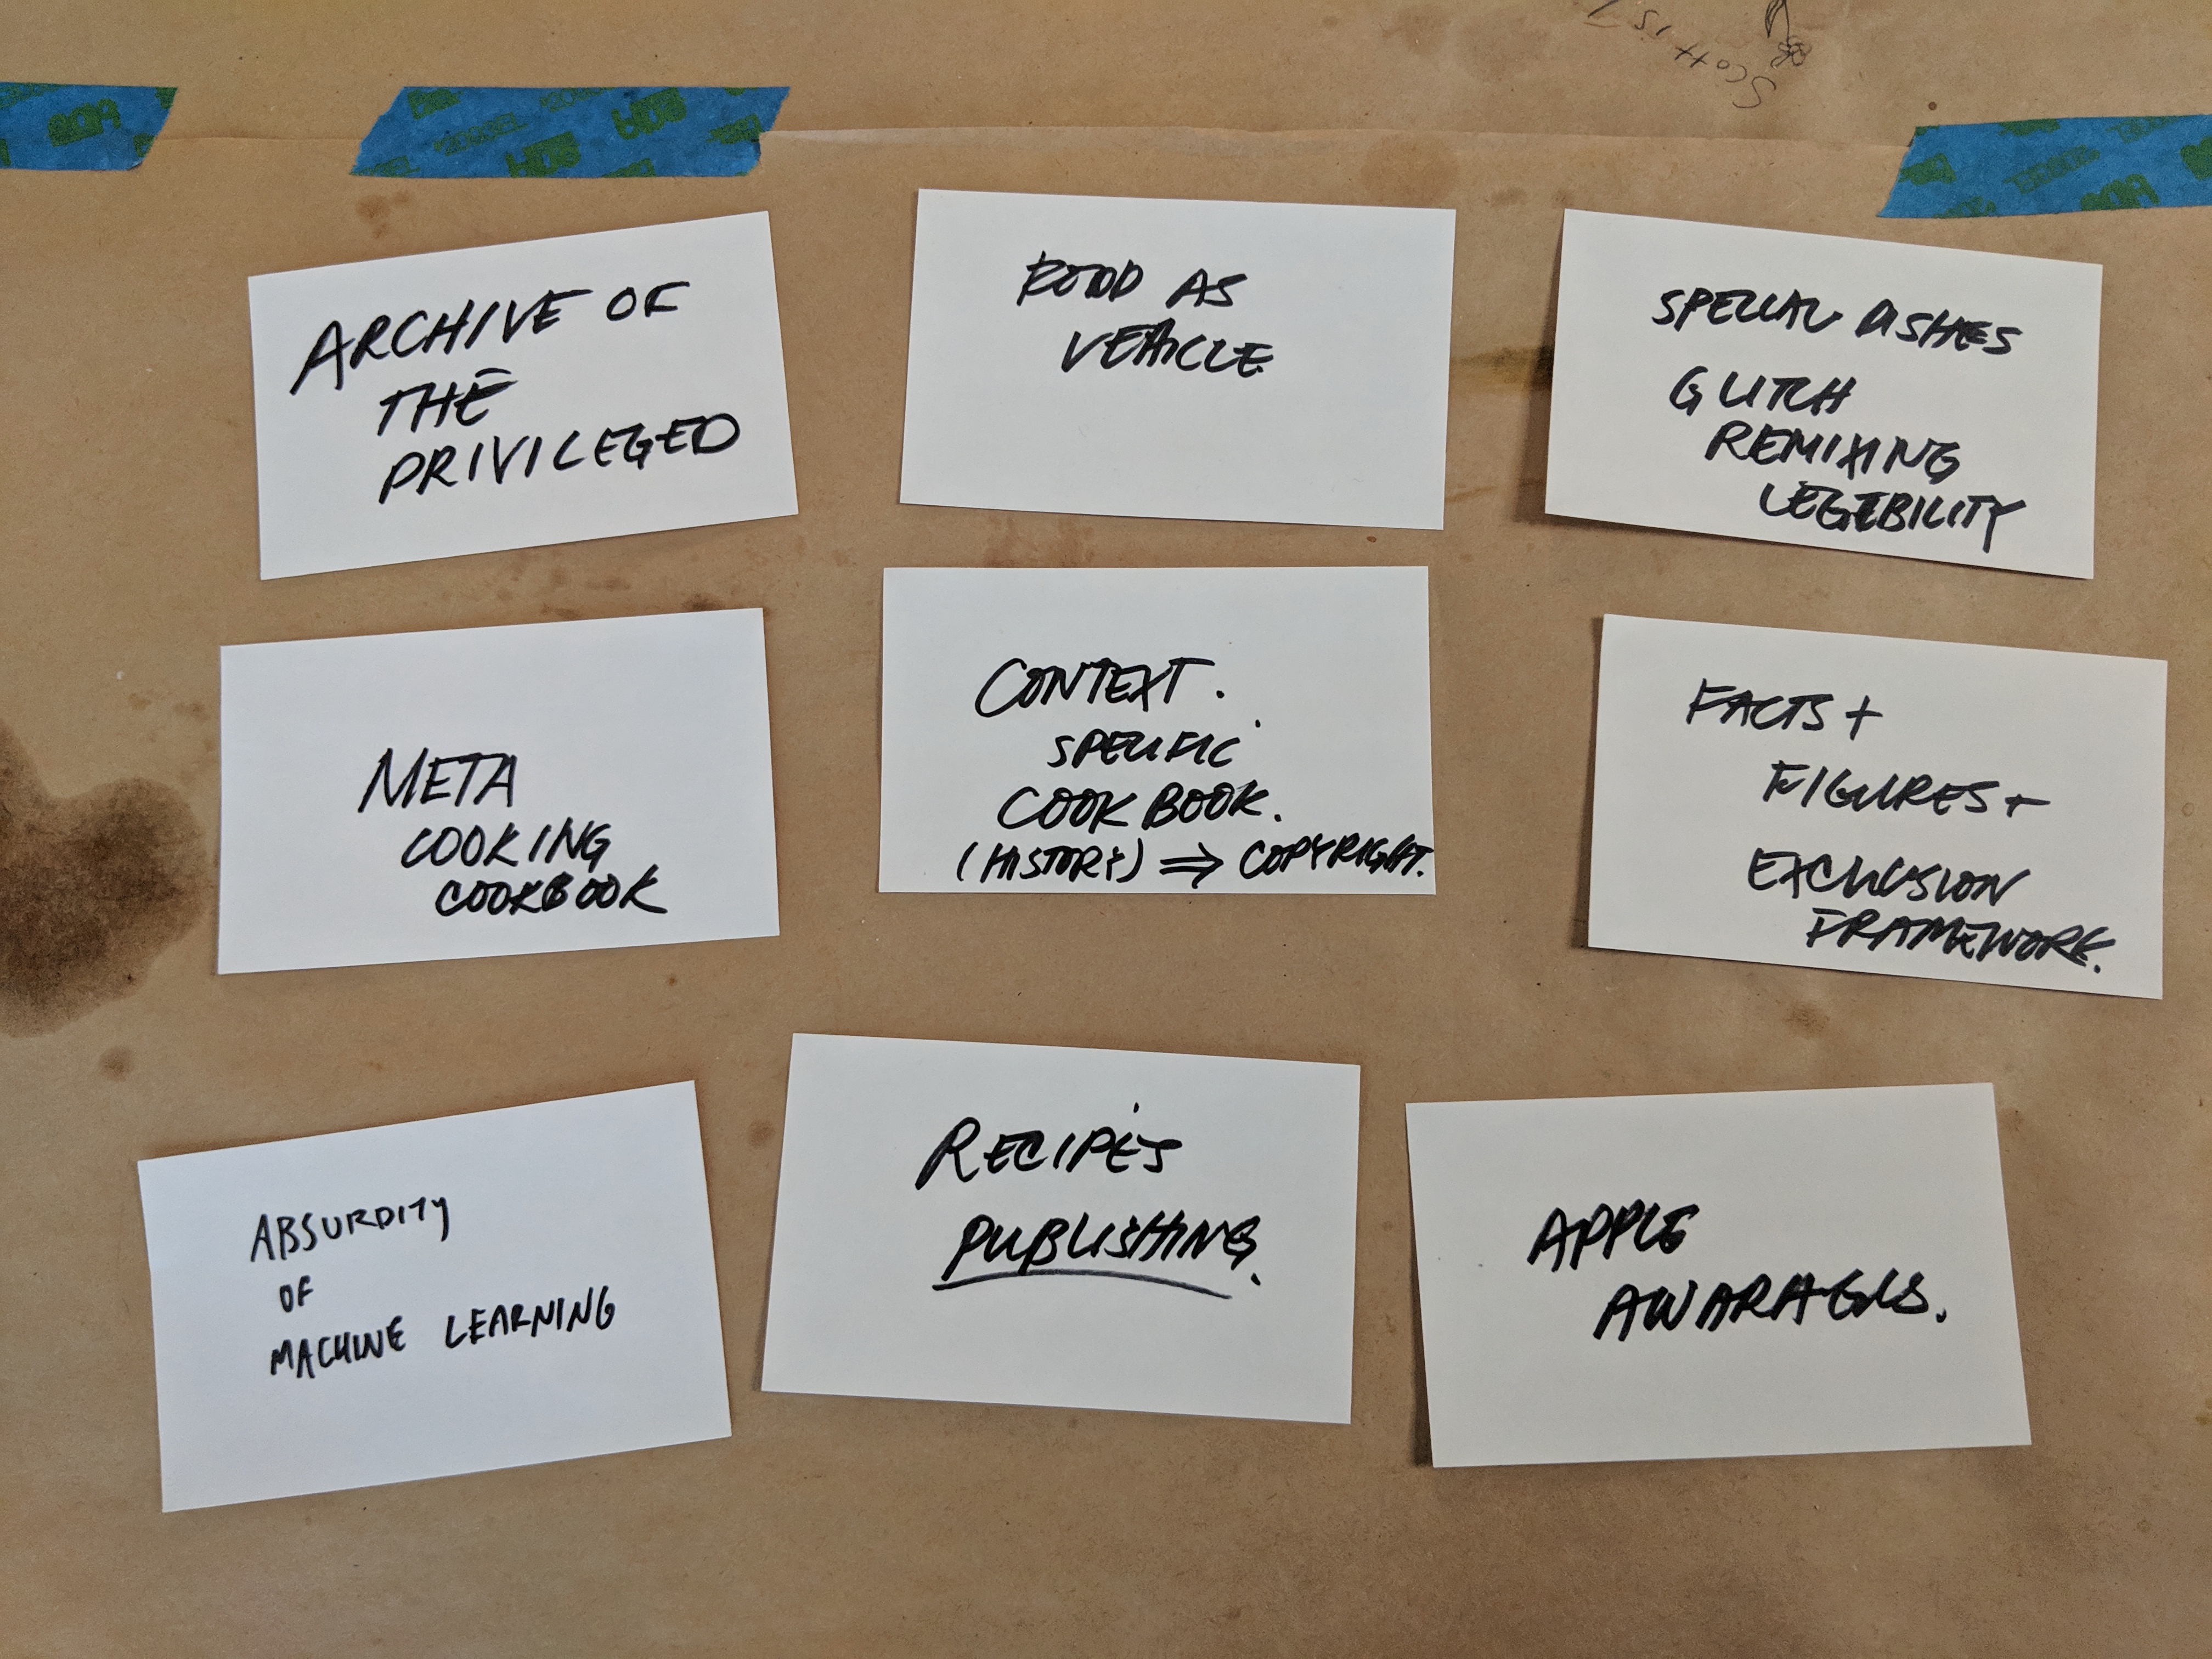 SCOTT IS
ARCHIVE OF
THE
PRIVILEGED
FOOD AS
VEHICLE.
SPECIAL DISHES
GLITCH
REMIXING
LEGIBILITY
META
COOKING
COOKBOOK
CONTEXT.
SPECIFIC
COOK BOOK.
(HISTORY) ⇒ COPYRIGHT.
FACTS +
FIGURES +
EXCLUSION
FRAMEWORK.
ABSURDITY
OF
MACHINE LEARNING
RECIPES
PUBLISHING.
APPLE